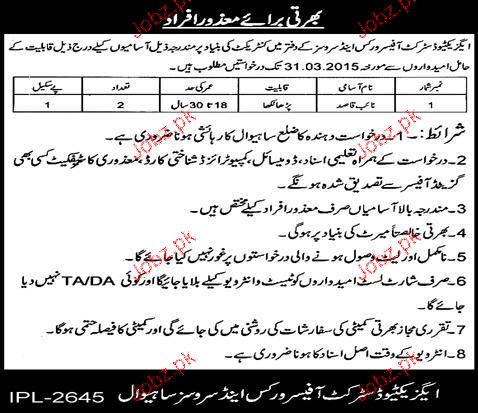 بھرتی برائے معذور افراد
ایگزیکٹیو ڈسٹرکٹ آفیسر ورکس اینڈ سروسز کے دفتر میں کنٹریکٹ کی بنیاد پر مندرجہ ذیل آسامیوں کیلئے درج ذیل قابلیت کے
حامل امیدواروں سے مورخہ 31.03.2015 تک درخواستیں مطلوب ہیں۔
نمبر شمار نام آسامی قابلیت عمر کی حد تعداد پے سکیل
1 نائب قاصد پڑھا لکھا 18 تا 30 سال 2 1
شرائط:۔ 1۔ درخواست دہندہ کا ضلع ساہیوال کا رہائشی ہونا ضروری ہے۔
2۔ درخواست کے ہمراہ تعلیمی اسناد، ڈومیسائل، کمپیوٹرائزڈ شناختی کارڈ، معذوری کا سرٹیفکیٹ کسی بھی
گزیٹڈ آفیسر سے تصدیق شدہ ہونگے۔
3۔ مندرجہ بالا آسامیاں صرف معذور افراد کیلئے مختص ہیں۔
4۔ بھرتی خالصتاً میرٹ کی بنیاد پر ہوگی۔
5۔ نامکمل اور لیٹ وصول ہونے والی درخواستوں پر غور نہیں کیا جائے گا۔
6۔ صرف شارٹ لسٹ امیدواروں کو ٹیسٹ و انٹرویو کیلئے بلایا جائیگا اور کوئی TA/DA نہیں دیا
جائے گا۔
7۔ تقرری مجاز بھرتی کمیٹی کی سفارشات کی روشنی میں کی جائے گی اور کمیٹی کا فیصلہ حتمی ہوگا۔
8۔ انٹرویو کے وقت اصل اسناد کا ہونا ضروری ہے۔
ایگزیکٹیو ڈسٹرکٹ آفیسر ورکس اینڈ سروسز ساہیوال IPL-2645
Jobz.pk